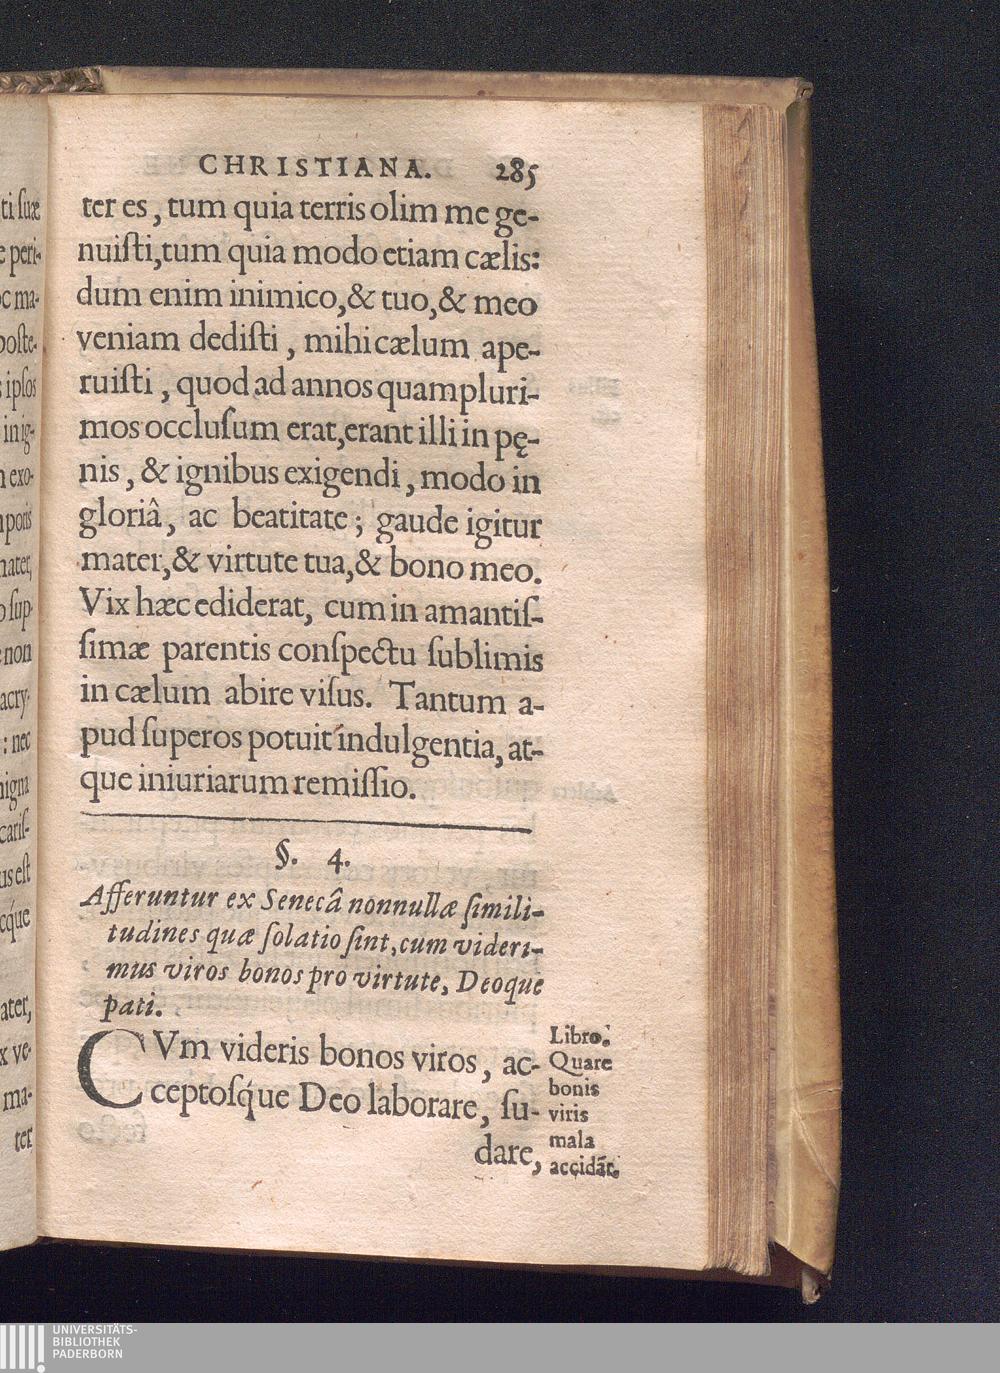 CHRISTIANA. 285
ter es, tum quia terris olim me ge-
nuiſti,tum quia modo etiam cælis:
dum enim inimico,& tuo,& meo
veniam dediſti, mihi cælum ape-
ruiſti, quod ad annos quampluri-
mos occluſum erat,erant illi in pę-
nis, & ignibus exigendi, modo in
gloriâ, ac beatitate; gaude igitur
mater,& virtute tua,& bono meo.
Vix hæc ediderat, cum in amantiſ-
ſimæ parentis conſpectu ſublimis
in cælum abire viſus. Tantum a-
pud ſuperos potuit indulgentia, at-
que iniuriarum remiſſio.
§. 4.
Afferuntur ex Senecâ nonnullæ ſimili-
tudines quæ ſolatio ſint, cum videri-
mus viros bonos pro virtute, Deoque
pati.
CVm videris bonos viros, ac-
ceptoſq́ue Deo laborare, ſu-
dare,
Libro.
Quare
bonis
viris
mala
accidāt.
ti ſuæ
e peri-
oc ma-
poſte-
s ipſos
in ig-
n exo-
mporis
mater,
o ſup-
e non
acry-
: nec
nigna
cariſ-
us eſt
cq́ue
ater,
x ve-
ma-
ter
UNIVERSITÄTS-
BIBLIOTHEK
PADERBORN